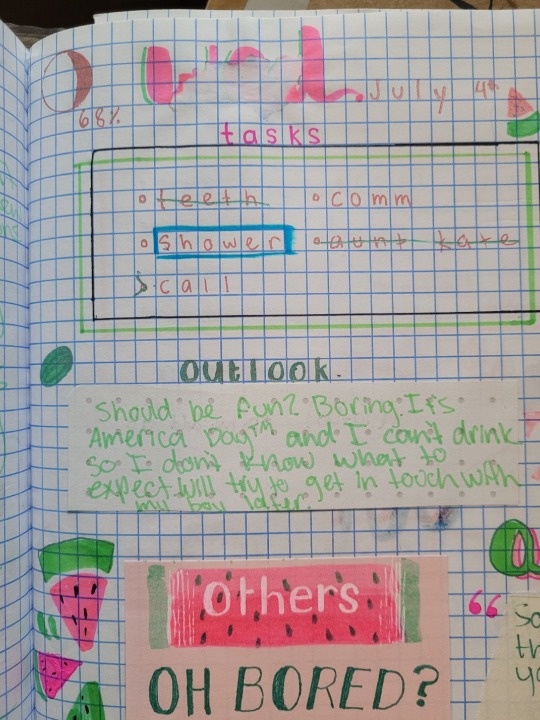 July 4th
68%
tasks
• teeth
• comm
• shower
• aunt kate
> call
outlook.
Should be fun? Boring. It's
America Day™ and I can't drink
so I don't know what to
expect. Will try to get in touch with
my boy later.
Others
OH BORED?
“
So
th
yo